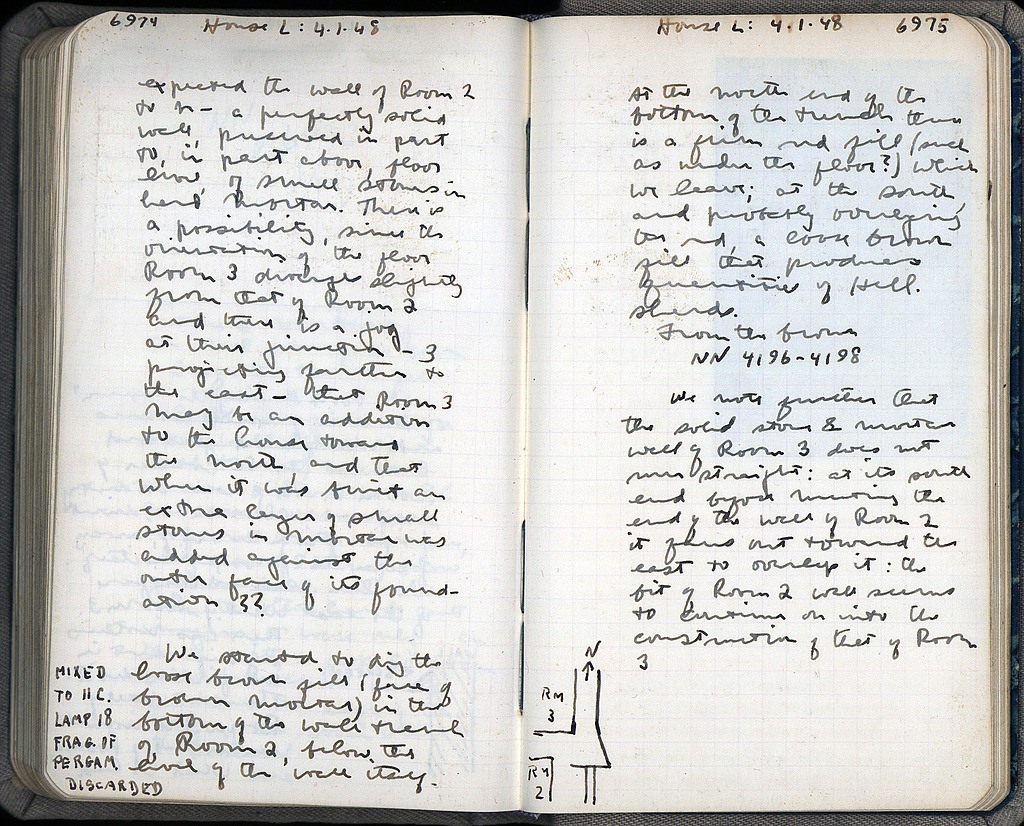 6974 House L: 4.1.48
expected the wall of Room 2
to N – a perfectly solid
wall, preserved in part
to, in part above, floor
level, of small stones in
hard mortar. There is
a possibility, since the
orientation of the floor
Room 3 diverges slightly
from that of Room 2
and there is a jog
at their junction – 3
projecting farther to
the east – that Room 3
may be an addition
to the house toward
the north and that
when it was built an
extra layer of small
stones in mortar was
added against the
outer face of its found-
ation 3??
We started to dig the
loose brown fill (full of
broken mortar) in the
bottom of the wall trench
of Room 2, below the
level of the wall itself.
MIXED
TO II C.
LAMP 18
FRAG. OF
PERGAM.
DISCARDED
House L: 4.1.48 6975
At the north end of the
bottom of the trench there
is a firm red fill (such
as under the floor?) which
we leave; at the south,
and probably overlying
the red, a loose brown
fill that produces
quantities of Hell.
sherds.
From the brown
NN 4196-4198
We note further that
the solid stone & mortar
wall of Room 3 does not
run straight: at its south
end before meeting the
end of the wall of Room 2
it flares out toward the
east to overlap it: the
bit of Room 2 wall seems
to continue on into the
construction of that of Room
3
N
RM
3
RM
2